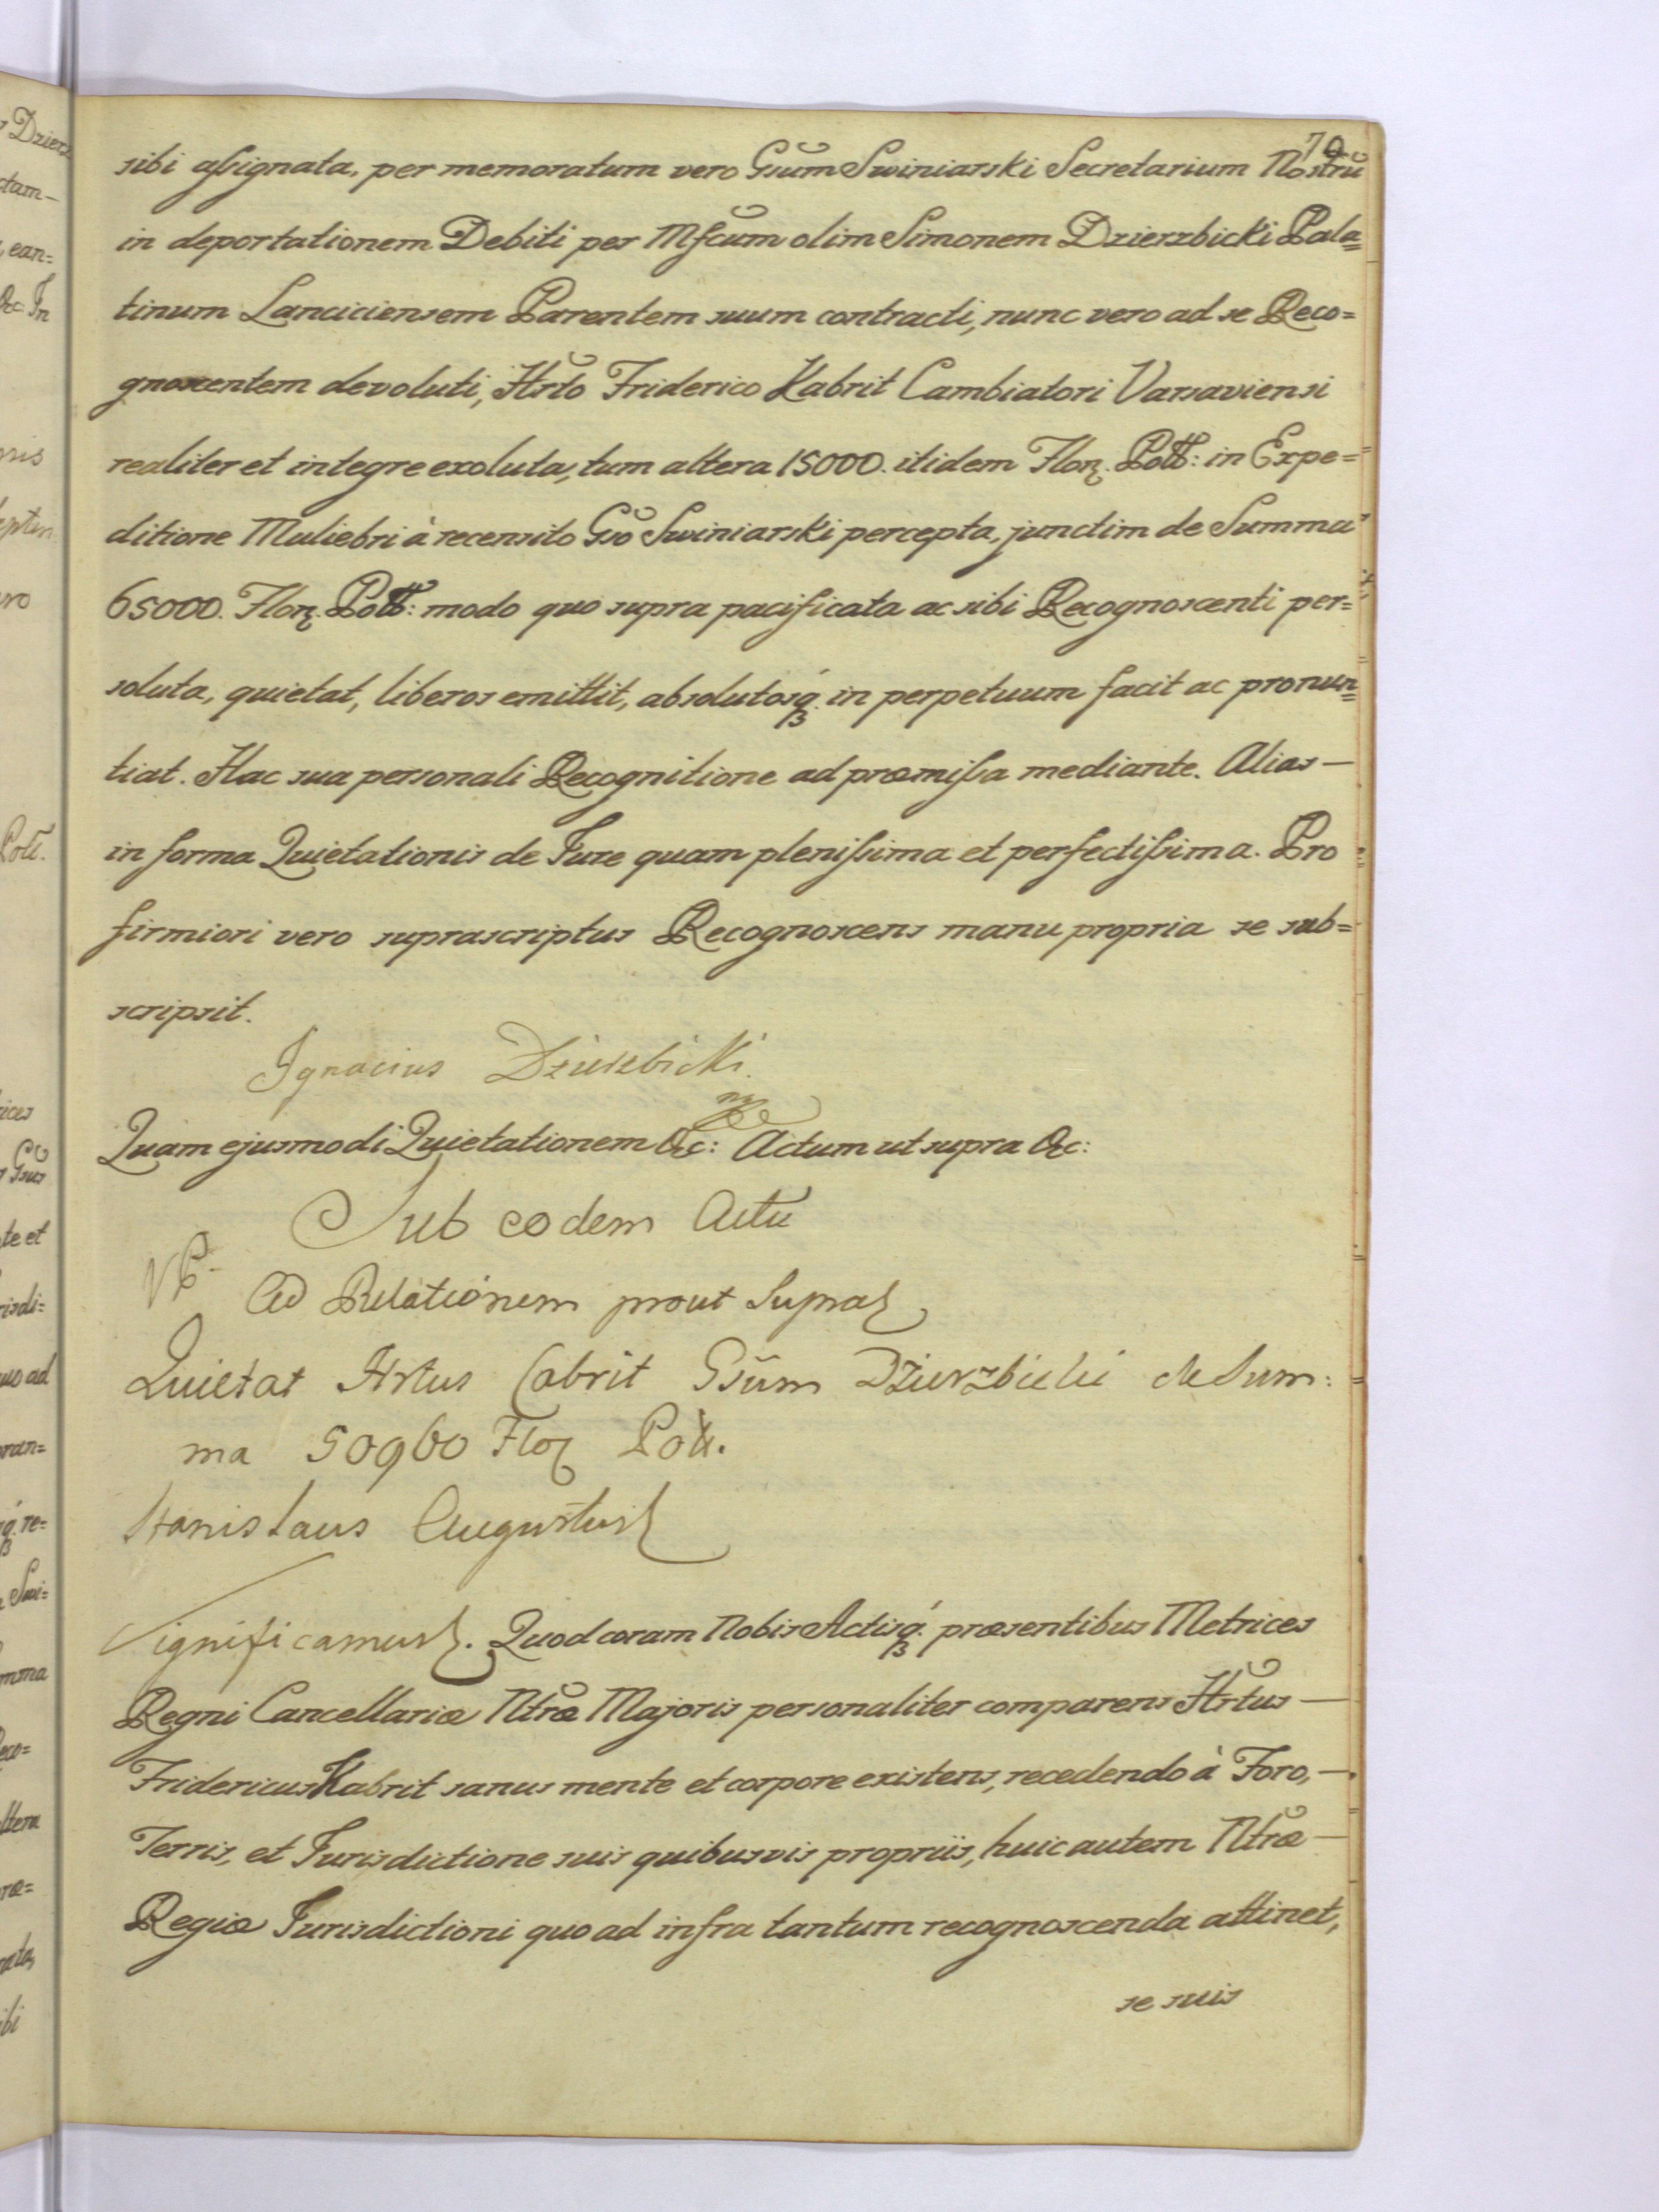 70
sibi assignata, per memoratum vero Gsum Swiniarski Secretarium Nostru
in deportationem Debiti per Mfcum olim Simonem Dzierzbicki Pala=
tinum Lanciciensem Parentem suum contracti, nunc vero ad se Reco=
gnoscentem devoluti, Hrto Friderico Kabrit Cambiatori Varsaviensi
realiter et integre exoluta, tum altera 15000. itidem Flor. Poll: in Expe=
ditione Muliebri à recensito Gso Swiniarski percepta, junctim de Summa
65000. Flor. Poll: modo quo supra pacificata ac sibi Recognoscenti per=
soluta, quietat, liberos emittit, absolutosq. in perpetuum facit ac pronun=
tiat. Hac sua personali Recognitione ad præmissa mediante. Alias —
in forma Quietationis de Jure quam plenissima et perfectissima. Pro
firmiori vero suprascriptus Recognoscens manu propria se sub=
scripsit.
Ignacius Dzierzbicki.
Quam ejusmodi Quietationem &c: Actum ut supra &c:
Sub eodem Actu
Ad Relationem prout Supra
Quietat Hrtus Cabrit Gsum Dzierzbicki de Sum:
ma 50960 Flor Poll.
Stanislaus Augustus
Significamus. Quod coram Nobis Actisq. præsentibus Metrices
Regni Cancellariæ Ntræ Majoris personaliter comparens Hrtus —
Fridericus Kabrit sanus mente et corpore existens, recedendo à Foro, —
Terris, et Jurisdictione suis quibusvis propriis, huic autem Ntræ —
Regiæ Jurisdictioni quo ad infra tantum recognoscenda attinet,
se suis